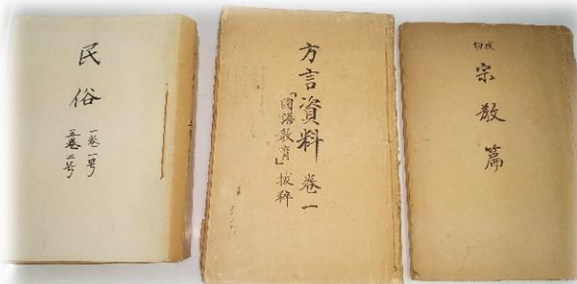 民俗
一巻一号
五巻二号
方言資料 巻一
「国語教育」抜粹
切抜
宗教篇